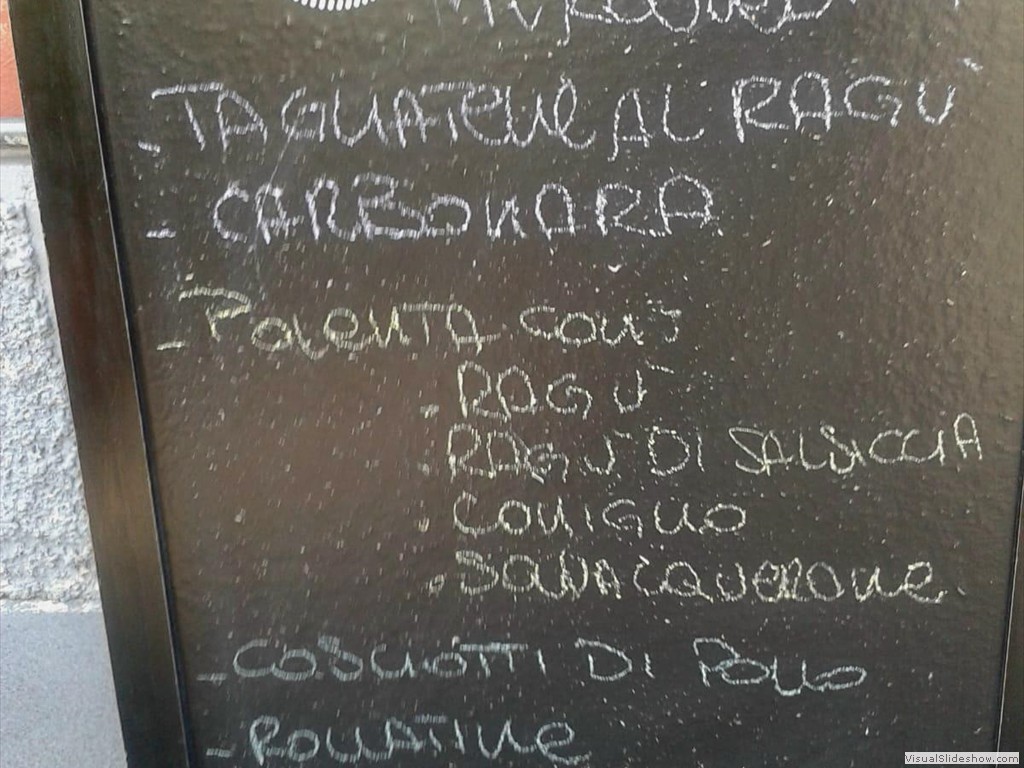 - TAGLIATELLE AL RAGÙ
- CARBONARA
- POLENTA CON:
. RAGÙ
. RAGÙ DI SALSICCIA
. CONIGLIO
.
- COSCIOTTI DI POLLO
- POLLATINE
VisualSlideshow.com